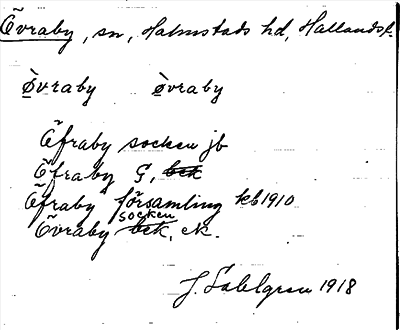 Övraby, sn, Halmstads hd, Hallands l.
Òvraby Òvraby
Öfraby socken jb
Öfraby G, bek
Öfraby församling kb 1910
socken
Övraby bek, ek.
J. Sahlgren 1918